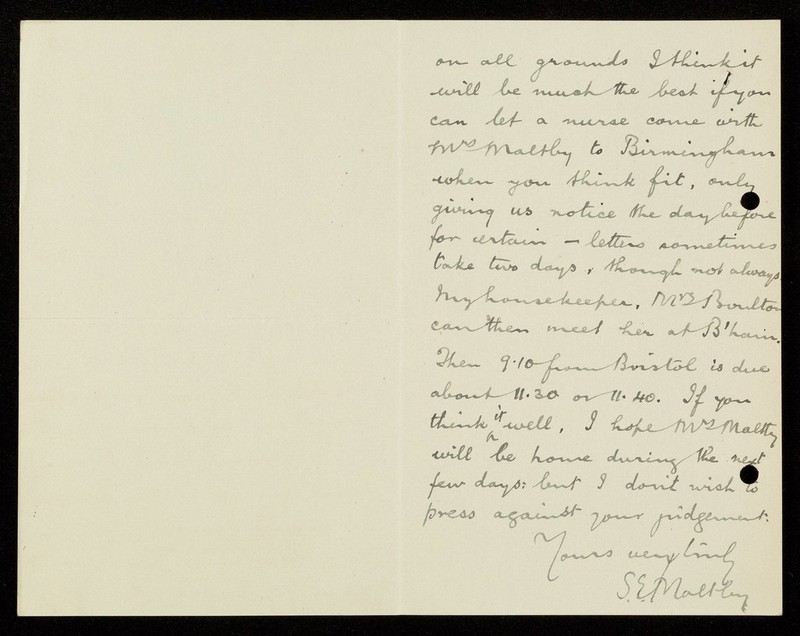 on all grounds I think it
will be much the best if you
can let a nurse come with
Mrs Maltby to Birmingham
when you think fit, only
giving us notice the day before
for certain – letters sometimes
take two days, though not always
My housekeeper, Mrs Boulton
can then meet her at B'ham.
Then 9.10 from Bristol is due
about 11.30 or 11.40. If you
think it well, I hope Mrs Maltby
will be home during the next
few days: but I don't wish to
press against your judgement.
Yours very truly
S.E. Maltby